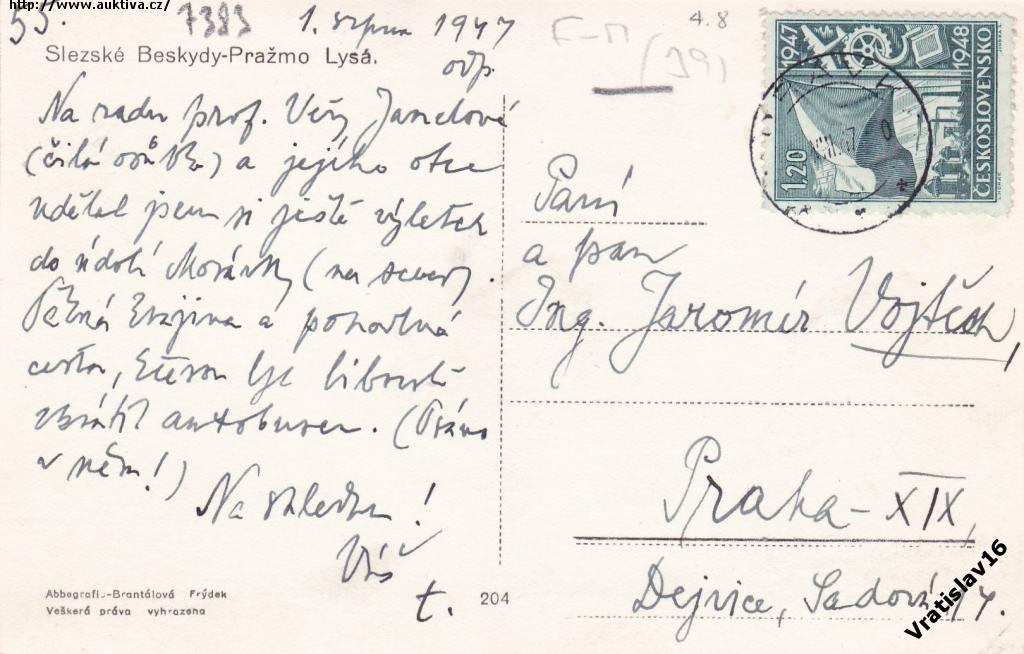 http://www.auktiva.cz/
53
7383
1. srpna 1947
odp.
Slezské Beskydy-Pražmo Lysá.
Na radu prof. Věry Janelové
a jejího otce
udělal jsem si ještě výletek
do údolí Morávky (na sever).
Pěkná krajina a pohodlná
cesta, kterou lze libovolně
zkrátit autobusem. (Psáno
v něm!)
Na shledanou!
Váš
t.
Abbegrafi.-Brantálová Frýdek
Veškerá práva vyhrazena
204
F-M
(39)
4.8
1947
1948
ČESKOSLOVENSKO
1.20
Paní
a pan
Ing. Jaromír Vojtěch,
Praha-XIX,
Dejvice, Sadová 14.
Vratislav16